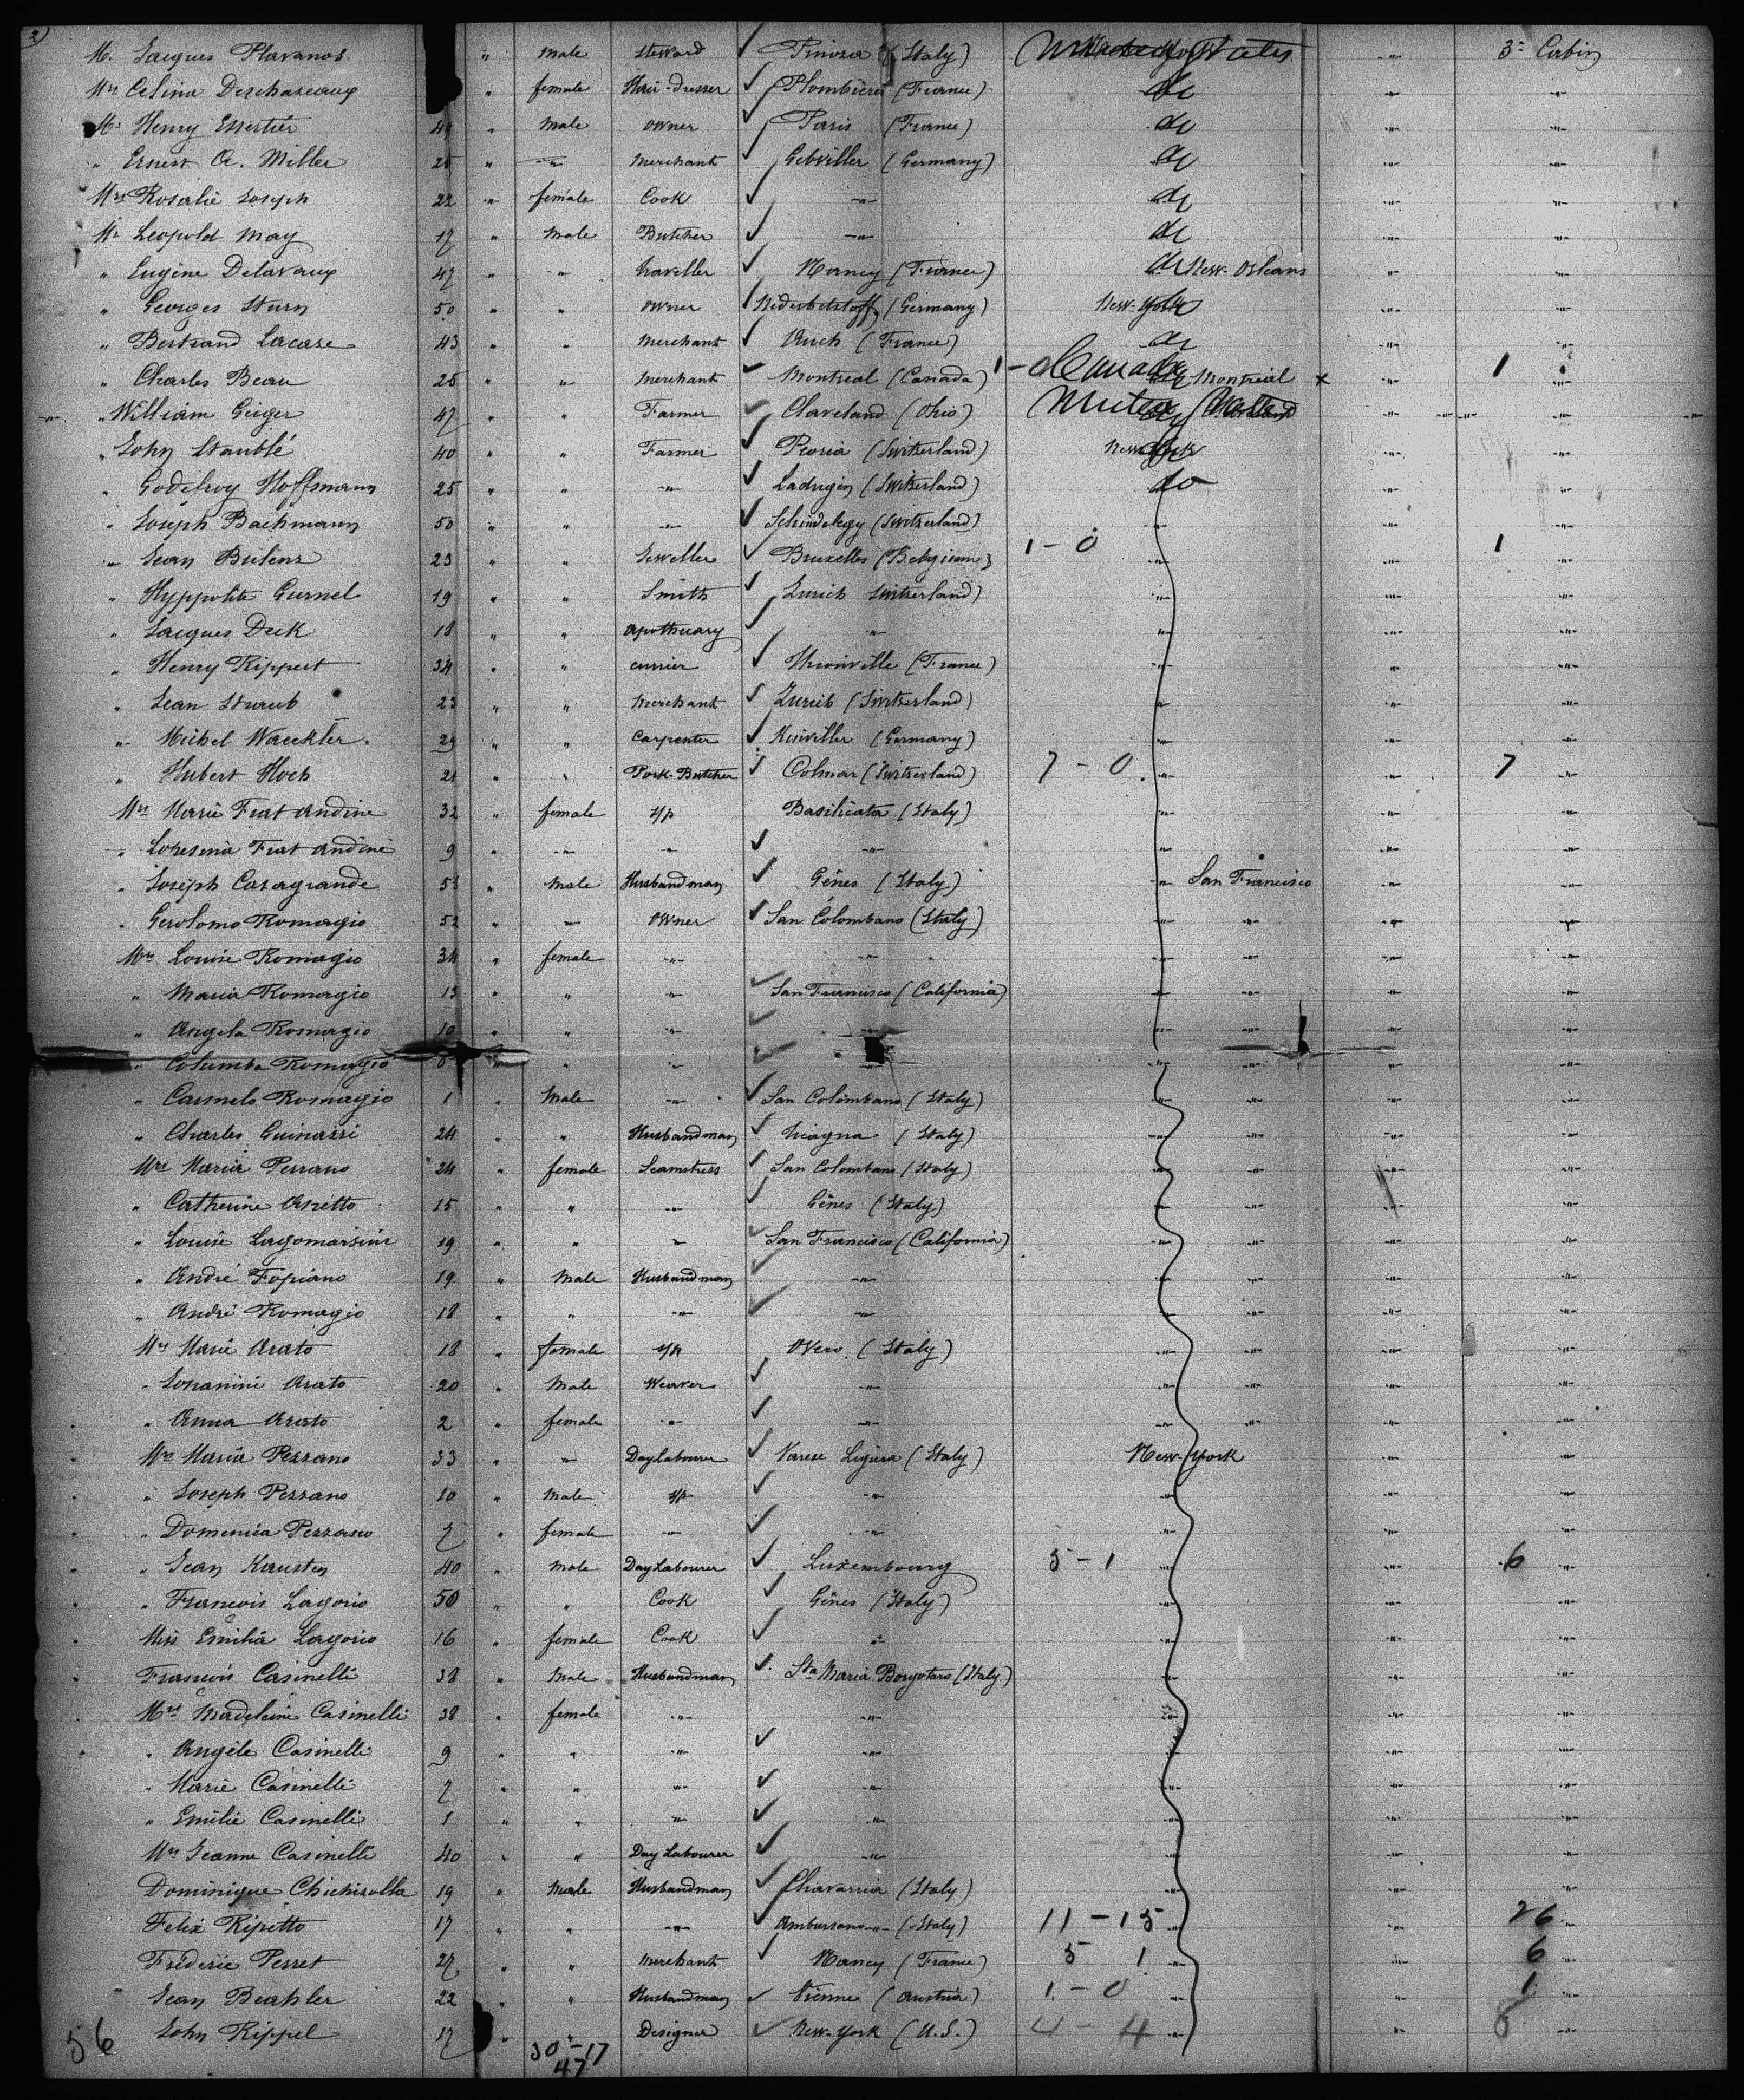 2)
Mr. Jacques Plavanos " male steward ✓ (Italy) United States -"- 3e Cabin
Mrs Celina Deschaseaux " female Hair-dresser ✓ Plombières (France) do -"- -"-
Mr Henry Essertier " Male owner ✓ Paris (France) do -"- -"-
" Ernest A. Miller " -"- Merchant ✓ Gebviller (Germany) do -"- -"-
Mrs Rosalie Joseph 22 " female Cook ✓ -"- do -"- -"-
Mr Leopold May 17 " Male Butcher ✓ -"- do -"- -"-
" Eugène Delavaux 47 " -"- traveller ✓ Nancy (France) do New-Orleans -"- -"-
" Georges Sturn 50 " " owner ✓ (Germany) New-York -"- -"-
" Bertrand Lacaze 43 " " Merchant ✓ Auch (France) do -"- -"-
" Charles Beau 25 " " Merchant ✓ Montreal (Canada) 1 - 0 Canada Montreal x -"- 1
" William Geiger 47 " " Farmer ✓ Claveland (Ohio) United States -"- -"-
" John Staublé 40 " " Farmer ✓ Peoria (Switzerland) New-York -"- -"-
" Godefroy Hoffmann 25 " " -"- ✓ (Switzerland) do -"- -"-
" Joseph Bachmann 50 " " -"- ✓ Schindelegy (Switzerland) -"- -"- -"-
" Jean Bulens 23 " " Jeweller ✓ Bruxelles (Belgium) 1 - 0 -"- -"- 1
" Hyppolite Gurnel 19 " " Smith ✓ Zurich Switzerland) -"- -"- -"-
" Jacques Dick 18 " " apothecary ✓ " -"- -"- -"-
" Henry Rippert 34 " " currier ✓ Thionville (France) -"- -"- -"-
" Jean Straub 23 " " Merchant ✓ Zurich (Switzerland) -"- -"- -"-
" Michel Waeckler 29 " " Carpenter ✓ (Germany) -"- -"- -"-
" Hubert Hoch 21 " " Pork-Butcher ✓ Colmar (Switzerland) 7 - 0 -"- -"- 7
Mrs Marie Frat Andine 32 " female s/p Basilicata (Italy) -"- -"- -"-
" Frat Andine 9 " -"- -"- ✓ -"- -"- -"- -"-
" Joseph Casagrande " Male Husbandman ✓ Gênes (Italy) -"- San Francisco -"- -"-
" Gerolomo Romagio 52 " -"- owner ✓ San Colombano (Italy) -"- -"- -"- -"-
Mrs Louise Romagio 34 " female -"- -"- -"- -"- -"- -"-
" Maria Romagio 13 " " -"- ✓ San Francisco (California) -"- -"- -"- -"-
" Angela Romagio 10 " " -"- ✓ -"- -"- -"- -"- -"-
" Columba Romagio " " -"- ✓ -"- -"- -"- -"- -"-
" Carmelo Romagio 1 " Male -"- ✓ San Colombano (Italy) -"- -"- -"- -"-
" Charles Guinassi 24 " " Husbandman ✓ (Italy) -"- -"- -"- -"-
Mrs Maria Perrano 24 " female Seamstress ✓ San Colombano (Italy) -"- -"- -"- -"-
" Catherine Anetto 15 " " -"- ✓ Gênes (Italy) -"- -"- -"- -"-
" Louise Lagomarsini 19 " " " ✓ San Francisco (California) -"- -"- -"- -"-
" André Fopiano 19 " Male Husbandman ✓ -"- -"- -"- -"- -"-
" André Romagio 18 " " -"- ✓ -"- -"- -"- -"- -"-
Mrs Marie Arato 18 " female s/p (Italy) -"- -"- -"- -"-
" Arato 20 " Male Weaver ✓ -"- -"- -"- -"- -"-
" Anna Arato 2 " female -"- ✓ -"- -"- -"- -"- -"-
Mrs Maria Pezzano 33 " -"- Day Labourer ✓ Varese Ligura (Italy) New-York -"- -"-
" Joseph Pezzano 10 " Male s/p ✓ -"- -"- -"- -"-
" Domenica Pezzano 7 " female -"- ✓ -"- -"- -"- -"-
" Jean Kausten 40 " Male Day Labourer ✓ Luxembourg 5 - 1 -"- -"- 6
" François Lagorio 50 " " Cook ✓ Gênes (Italy) -"- -"- -"-
Miss Emilia Lagorio 16 " female Cook ✓ -"- -"- -"- -"-
François Casinelli 38 " Male Husbandman ✓ Sta Maria Borgotaro (Italy) -"- -"- -"-
Mrs Madeleine Casinelli 38 " female -"- -"- -"- -"- -"-
" Angèle Casinelli 9 " " -"- ✓ -"- -"- -"- -"-
" Marie Casinelli 7 " " -"- ✓ -"- -"- -"- -"-
" Emilie Casinelli 1 " " -"- ✓ -"- -"- -"- -"-
Mrs Jeanne Casinelli 40 " " Day Labourer ✓ -"- -"- -"- -"-
Dominique Chichisolla 19 " Male Husbandman ✓ Chavarria (Italy) -"- -"- -"-
Felix Ripetto 17 " " -"- ✓ (Italy) 11 - 15 -"- -"- 26
Fréderic Perret 27 " " Merchant ✓ Nancy (France) 5 1 -"- -"- 6
Jean Beahler 22 " " Husbandman ✓ Vienne (Austria) 1 - 0 -"- -"- 1
John Rippel 17 " " Designer ✓ New-York (U.S.) 4 - 4 -"- -"- 8
56 30 - 17
47